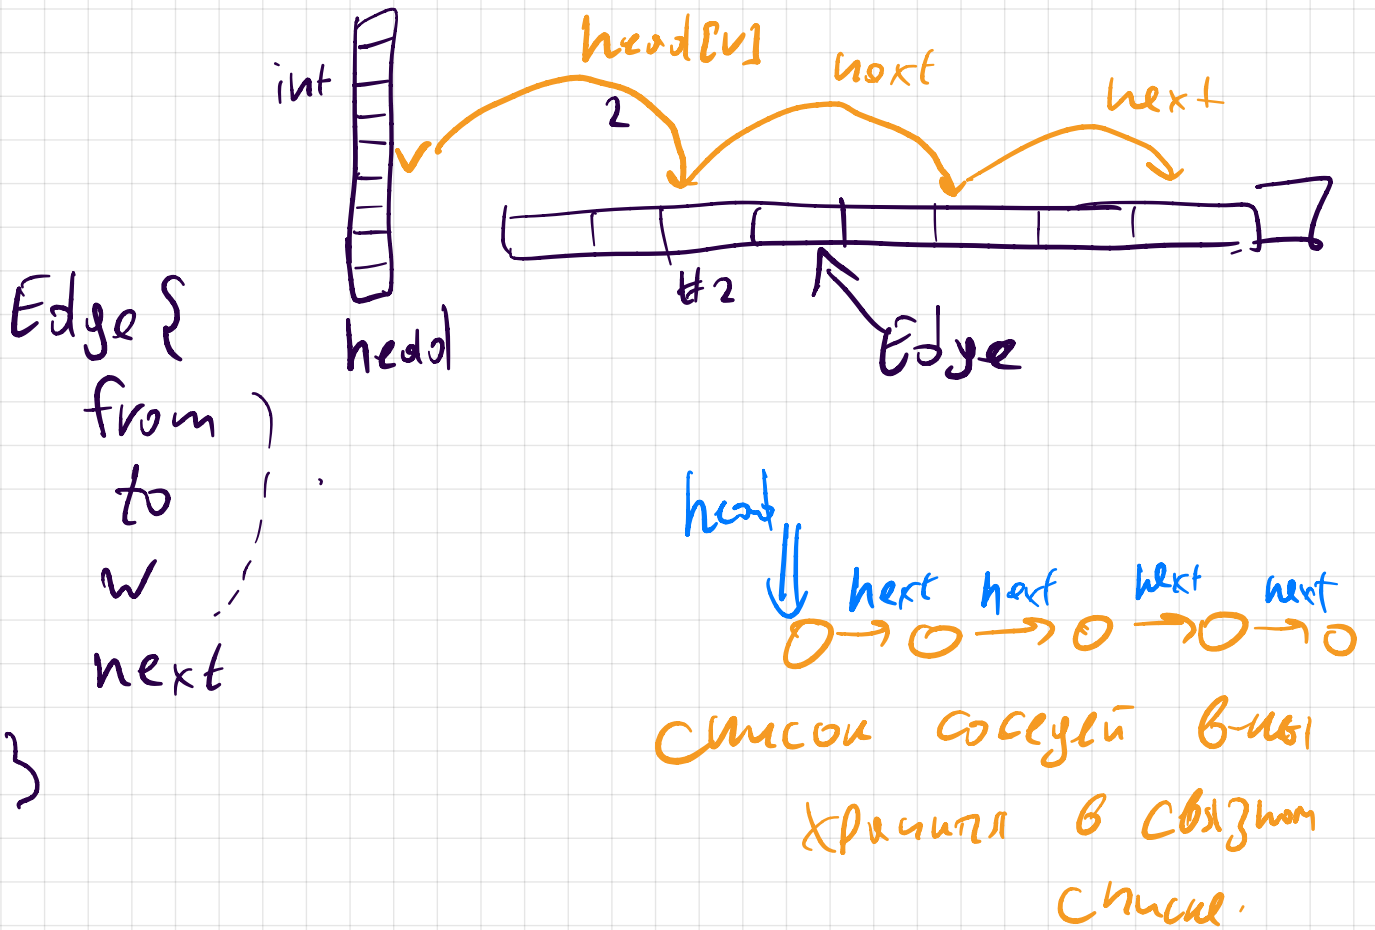 head[v]
next
next
int
2
#2
Edge {
head
Edge
from
to
w
next
}
head
next
next
next
next
список соседей в-ны
хранится в связном
списке.